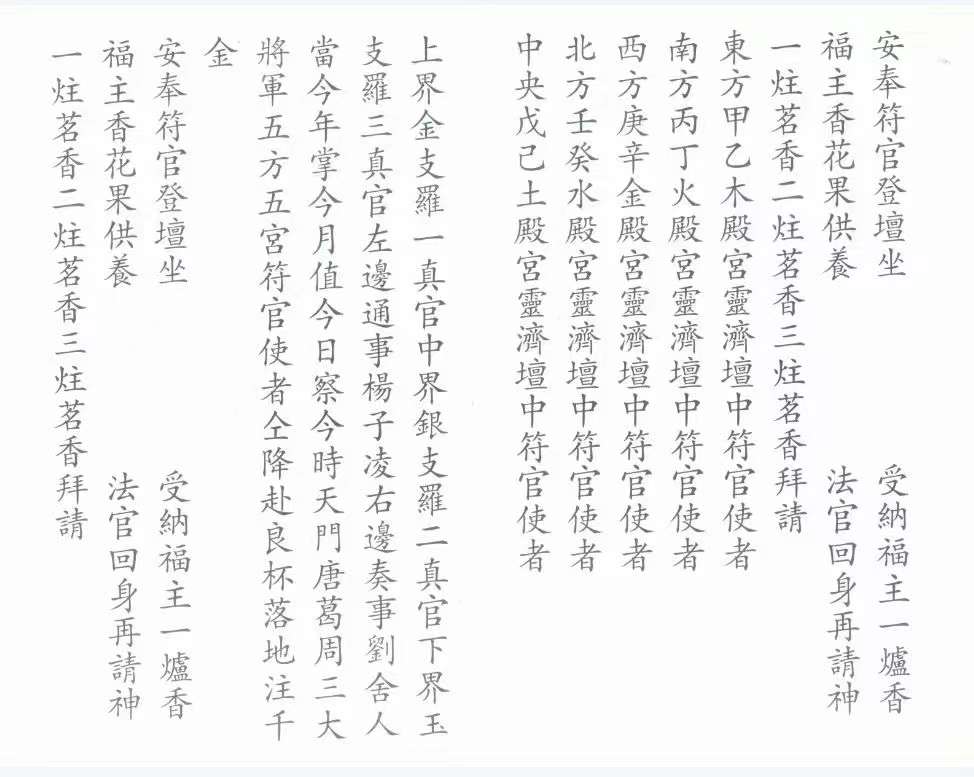 安奉符官登壇坐 受納福主一爐香
福主香花果供養 法官回身再請神
一炷茗香二炷茗香三炷茗香拜請
東方甲乙木殿宮靈濟壇中符官使者
南方丙丁火殿宮靈濟壇中符官使者
西方庚辛金殿宮靈濟壇中符官使者
北方壬癸水殿宮靈濟壇中符官使者
中央戊己土殿宮靈濟壇中符官使者
上界金支羅一真官中界銀支羅二真官下界玉
支羅三真官左邊通事楊子凌右邊奏事劉舍人
當今年掌今月值今日察今時天門唐葛周三大
將軍五方五宮符官使者仝降赴良杯落地注千
金
安奉符官登壇坐 受納福主一爐香
福主香花果供養 法官回身再請神
一炷茗香二炷茗香三炷茗香拜請